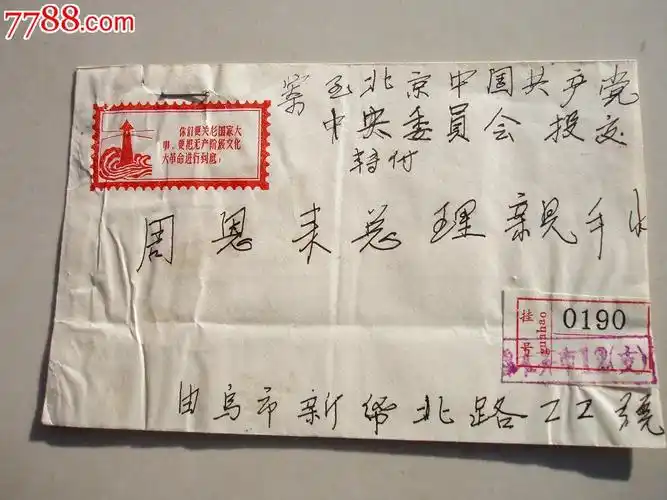 7788.com
寄至北京中国共产党
中央委員会 投交
转付
你们要关心国家大
事,要把无产阶级文化
大革命进行到底!
周恩来总理親手收
挂号
guahao
0190
由乌市新华北路工工号